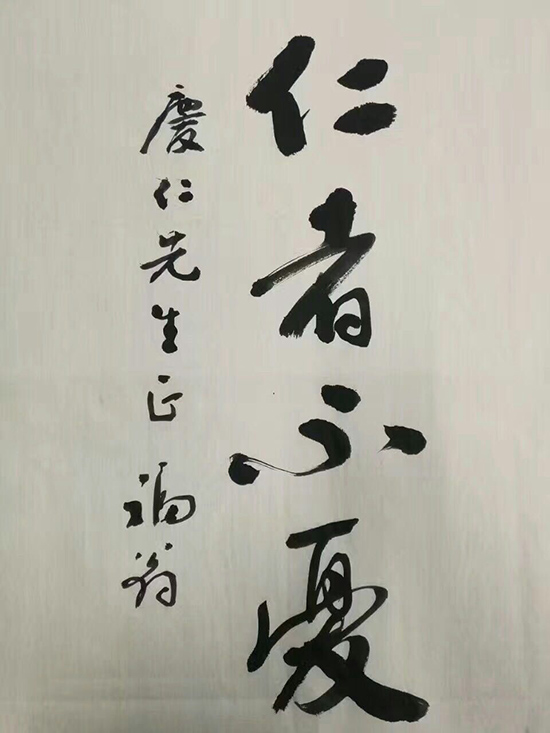 仁者不憂
慶仁先生正 福翁